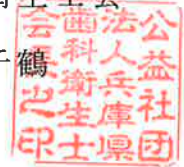 鶴
公益社団
法人兵庫県
歯科衛生士
会之印